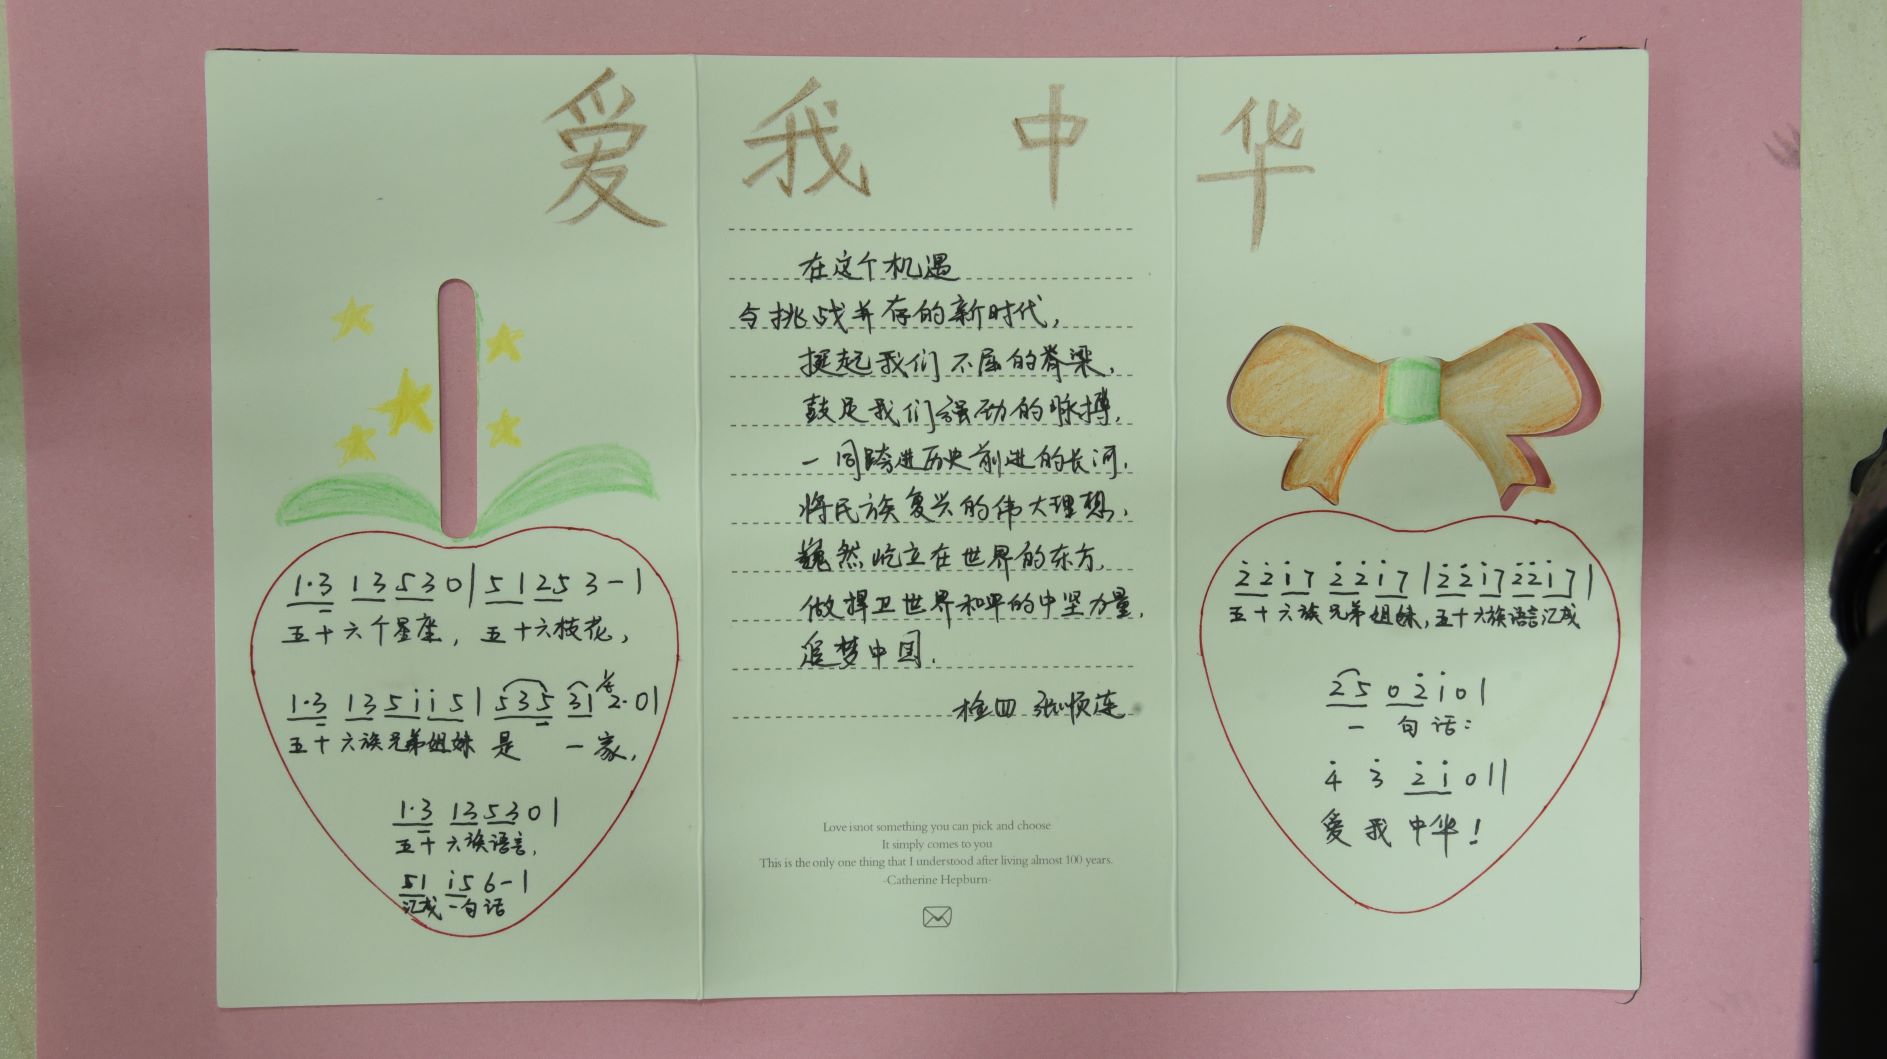 爱我中华
1·3 1 3 5 3 0 | 5 1 2 5 3 - |
五十六个星座，五十六枝花，
1·3 1 3 5 i i 5 | 5 3 5 3 1 2· 0 |
五十六族兄弟姐妹 是 一家，
1·3 1 3 5 3 0 |
五十六族语言，
5 1 i 5 6 - |
汇成一句话
在这个机遇
与挑战并存的新时代，
挺起我们不屈的脊梁，
鼓足我们强劲的脉搏，
一同跨进历史前进的长河，
将民族复兴的伟大理想，
巍然屹立在世界的东方，
做捍卫世界和平的中坚力量，
追梦中国，
检四
Love isnot something you can pick and choose
It simply comes to you
This is the only one thing that I understood after living almost 100 years.
-Catherine Hepburn-
2̇ 2̇ i 7 2̇ 2̇ i 7 | 2̇ 2̇ i 7 2̇ 2̇ i 7 |
五十六族兄弟姐妹，五十六族语言汇成
2̇ 5 0 2̇ i 0 |
一 句话：
4̇ 3̇ 2̇ i 0 ||
爱我中华！